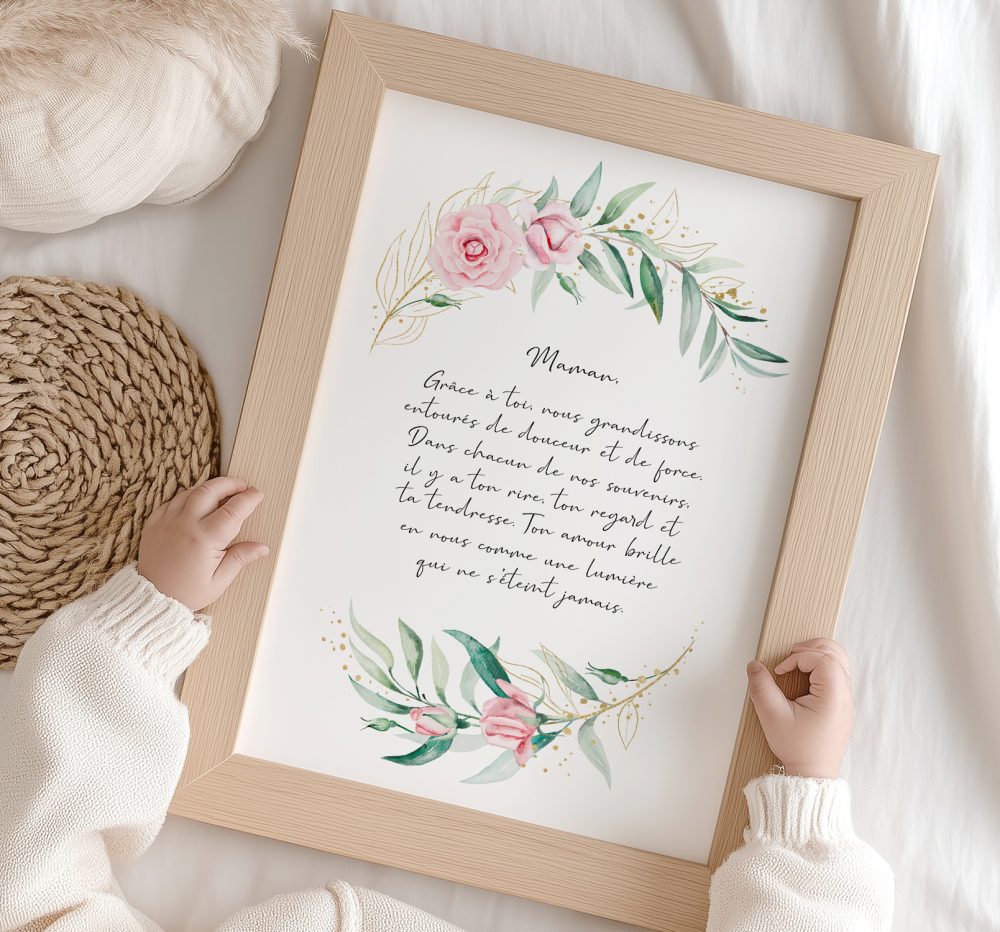 Maman,
Grâce à toi, nous grandissons
entourés de douceur et de force.
Dans chacun de nos souvenirs,
il y a ton rire, ton regard et
ta tendresse. Ton amour brille
en nous comme une lumière
qui ne s'éteint jamais.